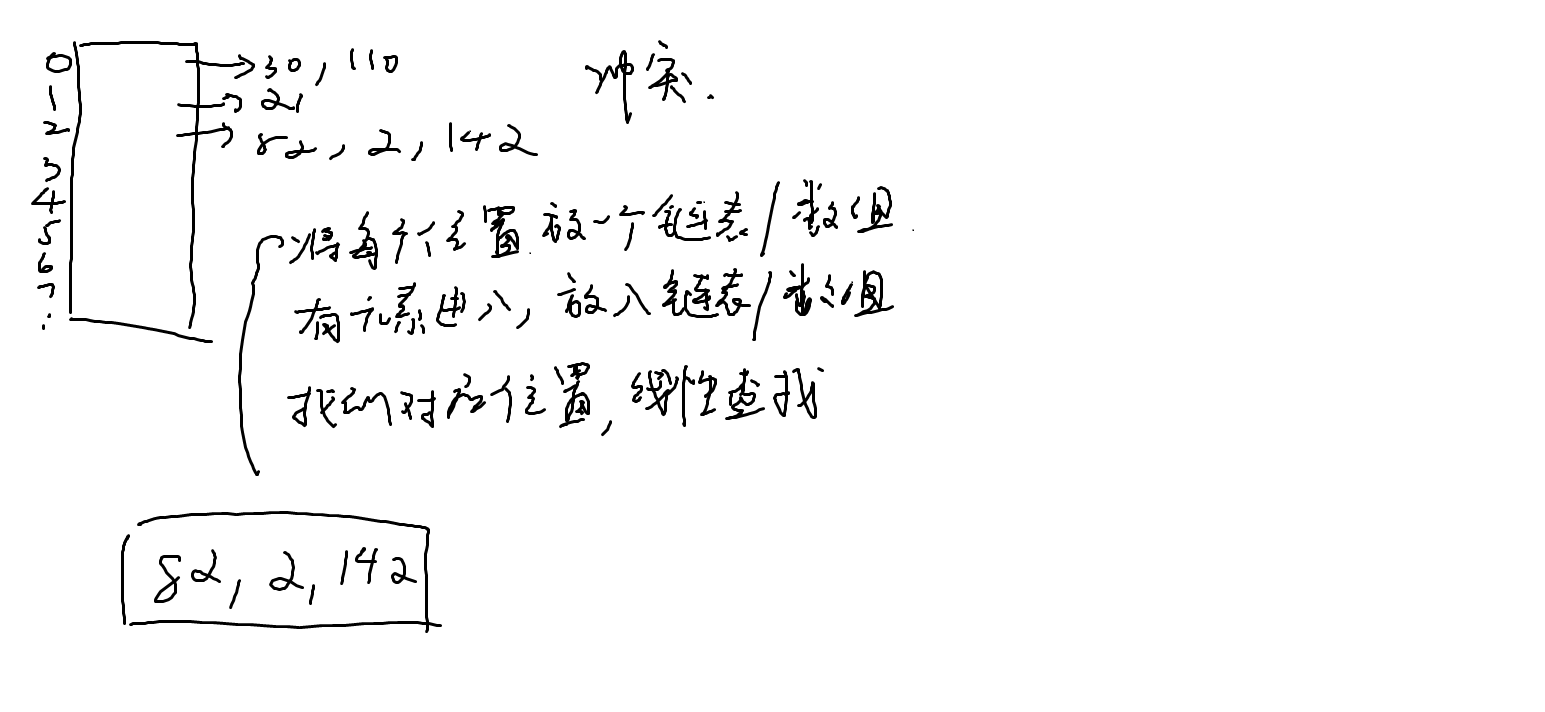 0 → 30, 110
冲突.
1 → 21
2 → 82, 2, 142
3
4
5
6
7
⋮
将每个位置放一个链表/数组
有元素进入, 放入链表/数组
找到对应位置, 线性查找
82, 2, 142